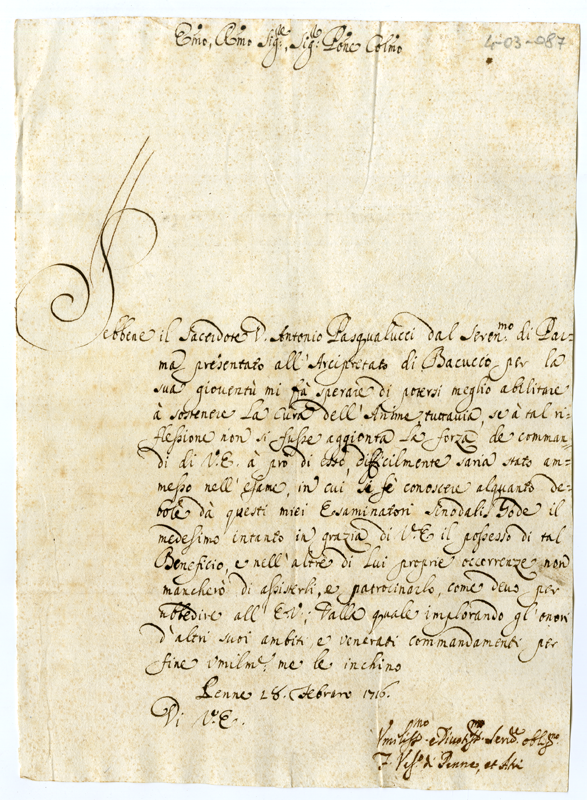 Emo, Rmo Sig.re, Sig.re Pṙone Colmo
4-03-087
Sebbene il Sacerdote D. Antonio Pasqualucci dal Seren.mo di Par=
ma presentato all'Arcipretato di Bacucco per la
sua gioventù mi fà sperare di potersi meglio abilitare
à sostenere la cura dell'Anime tuttavia, se à tal ri=
flessione non si fusse aggionta la forza de comman=
di di V.E. à prò di esso, difficilmente saria stato am=
messo nell'esame, in cui si fè conoscere alquanto de=
bole dà questi miei Esaminatori Sinodali. Gode il
medesimo intanto in grazia di V.E. il possesso di tal
Beneficio, e nell'altre di lui proprie occorrenze non
mancherò di assisterli, e patrocinarlo, come devo per
ubbedire all'E.V.; Dalla quale implorando gl'onori
d'altri suoi ambiti, e venerati commandamenti per
fine umilm.e me le inchino
Penne 28. Febraro 1716.
Di V.E.
Umiliss.mo e Divotiss.mo Serv.e oblig.mo
F. Vesc.o di Penne, et Atri